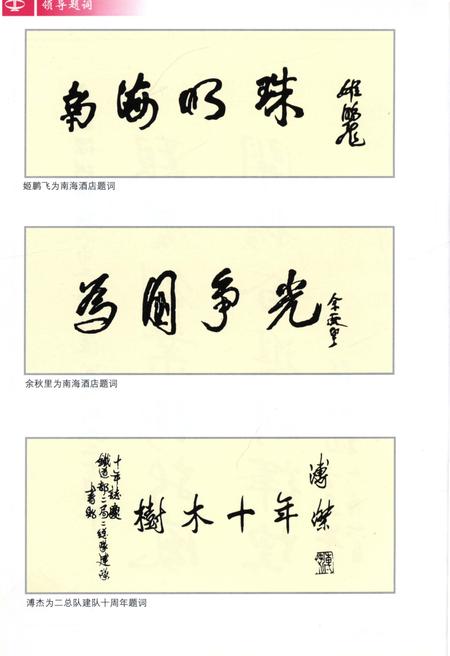 领导题词
南海明珠
姬鹏飞
姬鹏飞为南海酒店题词
為國争光
余秋里
余秋里为南海酒店题词
十年誌慶
鐵道部二局二總隊建隊
樹木十年
溥傑
溥杰为二总队建队十周年题词